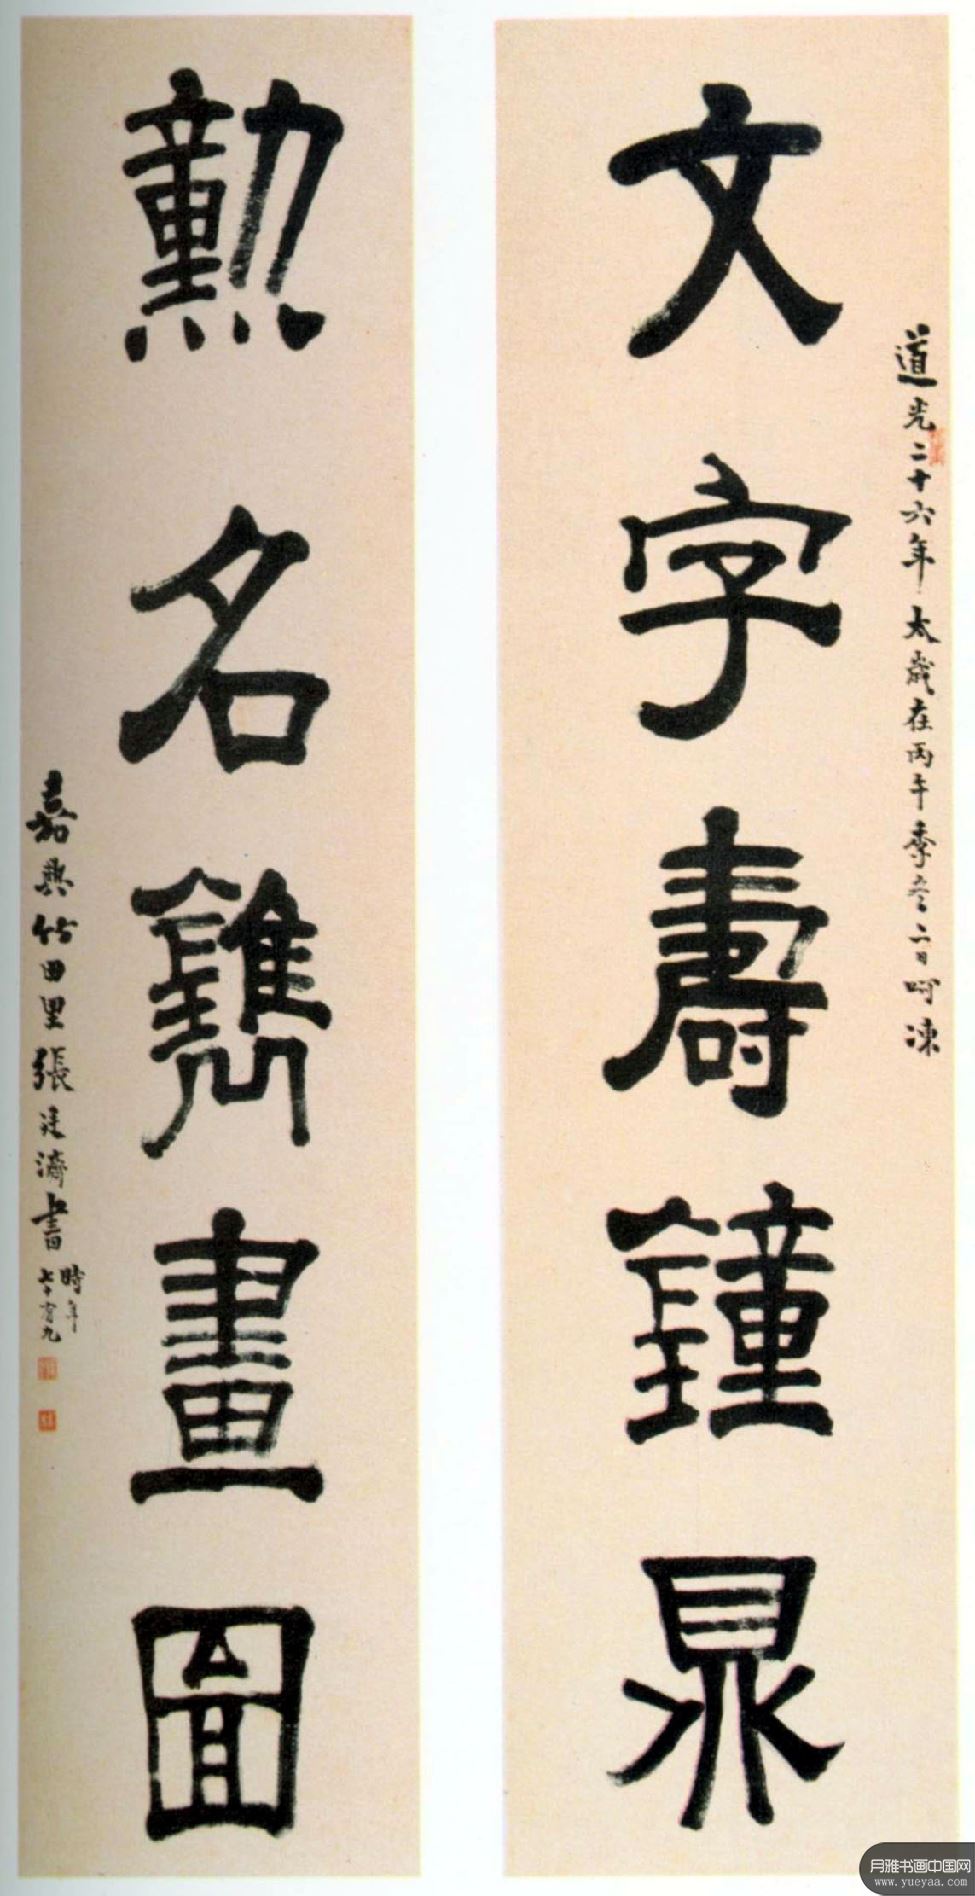 道光二十六年太歲在丙午季冬二日呵凍
文字壽鐘鼎
勳名鐫畫圖
嘉興竹田里張廷濟書
時年
七十有九
月雅书画中国网
www.yueyaa.com